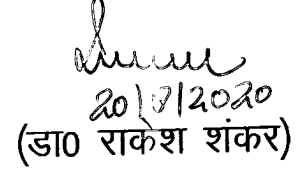 20/8/2020
(डा0 राकेश शंकर)